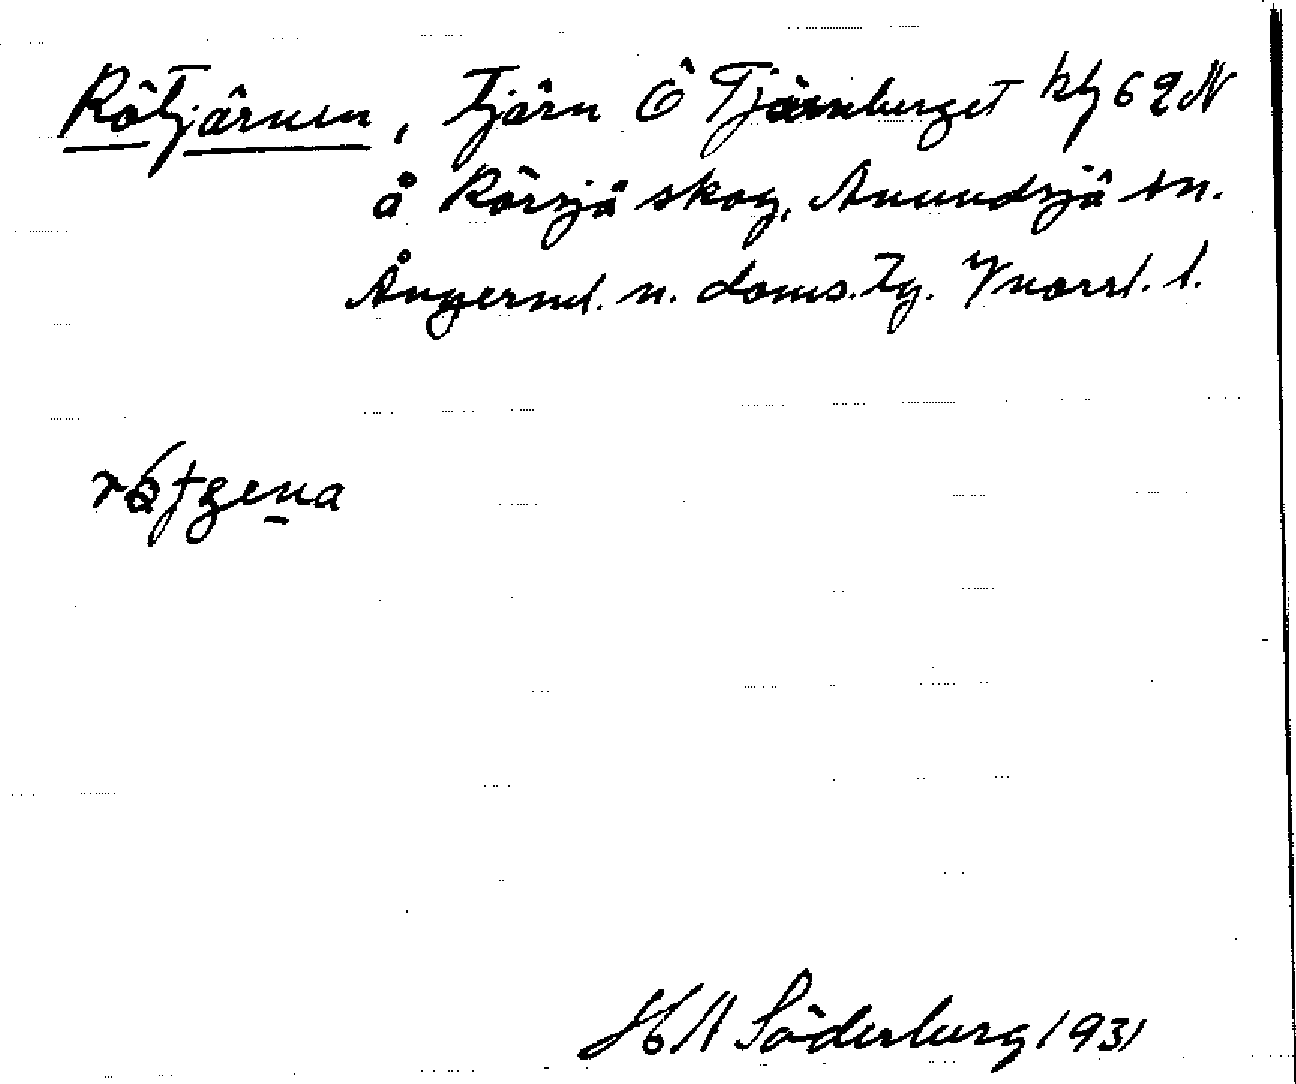 Rötjärnen, tjärn Ö Tjärnberget kbl 62 N
å Rörsjö skog, Anundsjö sn.
Ångerml. n. doms. tg. Vnorrl. l.
rötgena
HA Söderberg 1931